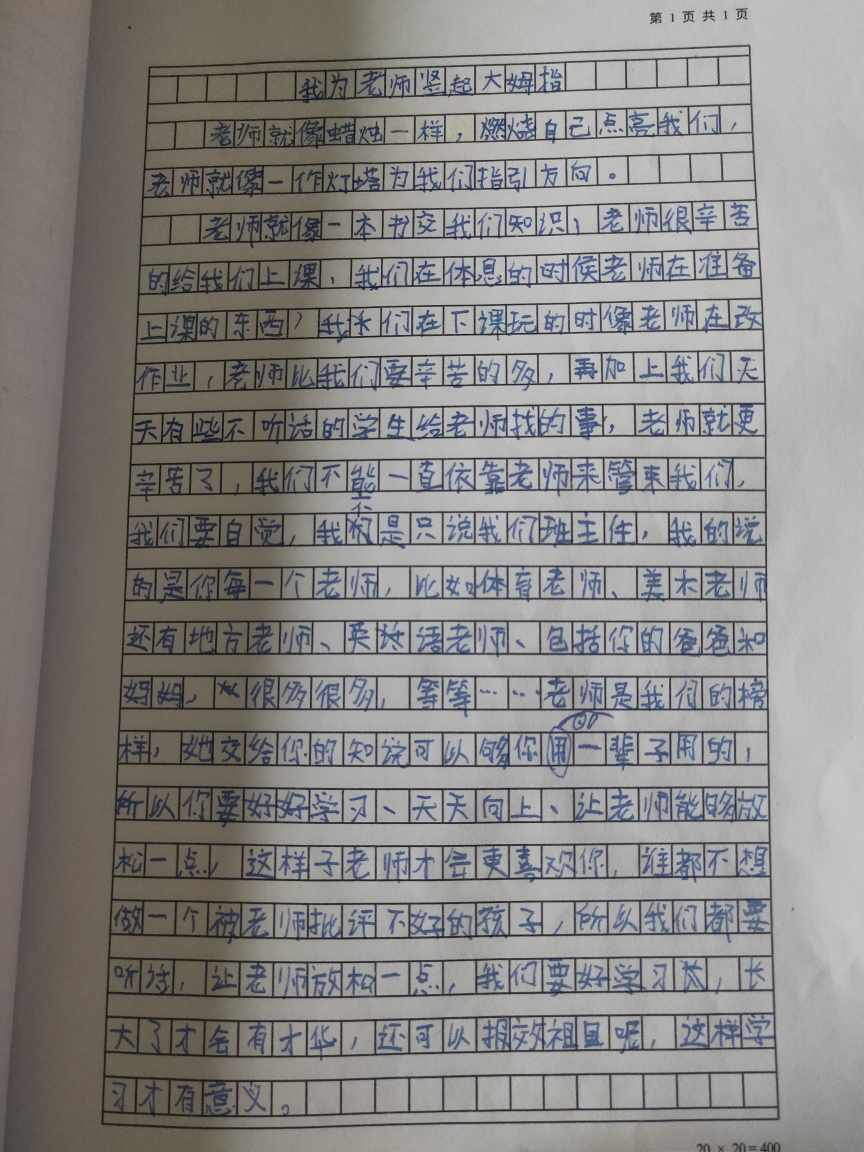 第 1 页 共 1 页
我为老师竖起大姆指
老师就像蜡烛一样，燃烧自己点亮我们，
老师就像一作灯塔为我们指引方向。
老师就像一本书交我们知识，老师很辛苦
的给我们上课，我们在体息的时侯老师在准备
上课的东西，我们在下课玩的时像老师在改
作业，老师比我们要辛苦的多，再加上我们天
天有些不听话的学生给老师找的事，老师就更
辛苦了，我们不能一直依靠老师来管束我们，
我们要自觉，我不是只说我们班主任，我的说
的是你每一个老师，比如体育老师、美术老师
还有地方老师、英语老师、包括你的爸爸和
妈妈，很多很多，等等……老师是我们的榜
样，她交给你的知识可以够你用一辈子用的，
所以你要好好学习、天天向上、让老师能够放
松一点，这样子老师才会更喜欢你，谁都不想
做一个被老师批评不好的孩子，所以我们都要
听话，让老师放松一点，我们要好学习长，长
大了才会有才华，还可以报效祖国呢，这样学
习才有意义。
20 × 20 = 400